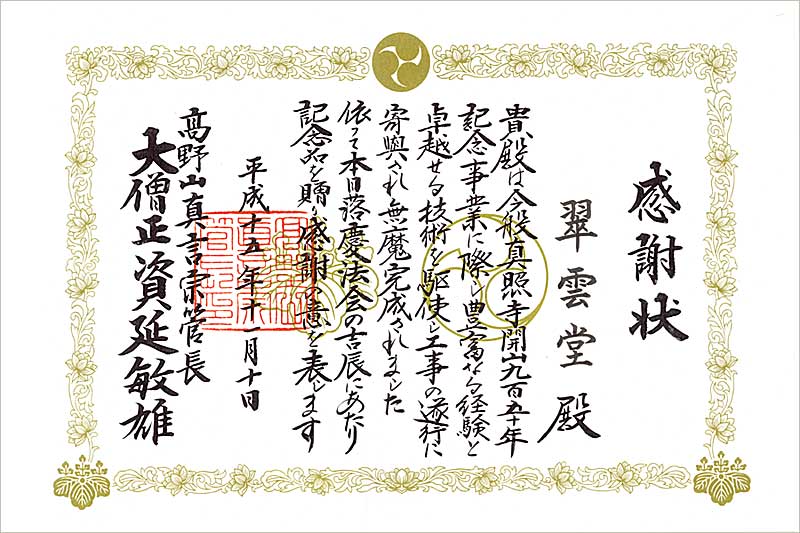 感謝状
翠雲堂 殿
貴殿は今般真照寺開山九百五十年
記念事業に際し豊富なる経験と
卓越せる技術を駆使し工事の遂行に
寄與され無魔完成されました
依って本日落慶法会の吉辰にあたり
記念品を贈り感謝の意を表します
平成十五年十一月十日
高野山真言宗管長
大僧正資延敏雄